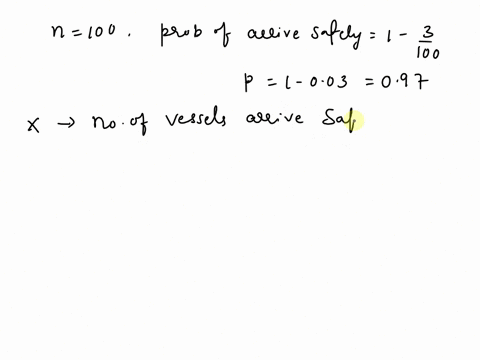 n = 100. prob of arrive safely = 1 - 3/100
p = 1 - 0.03 = 0.97
x → no. of vessels arrive Saf